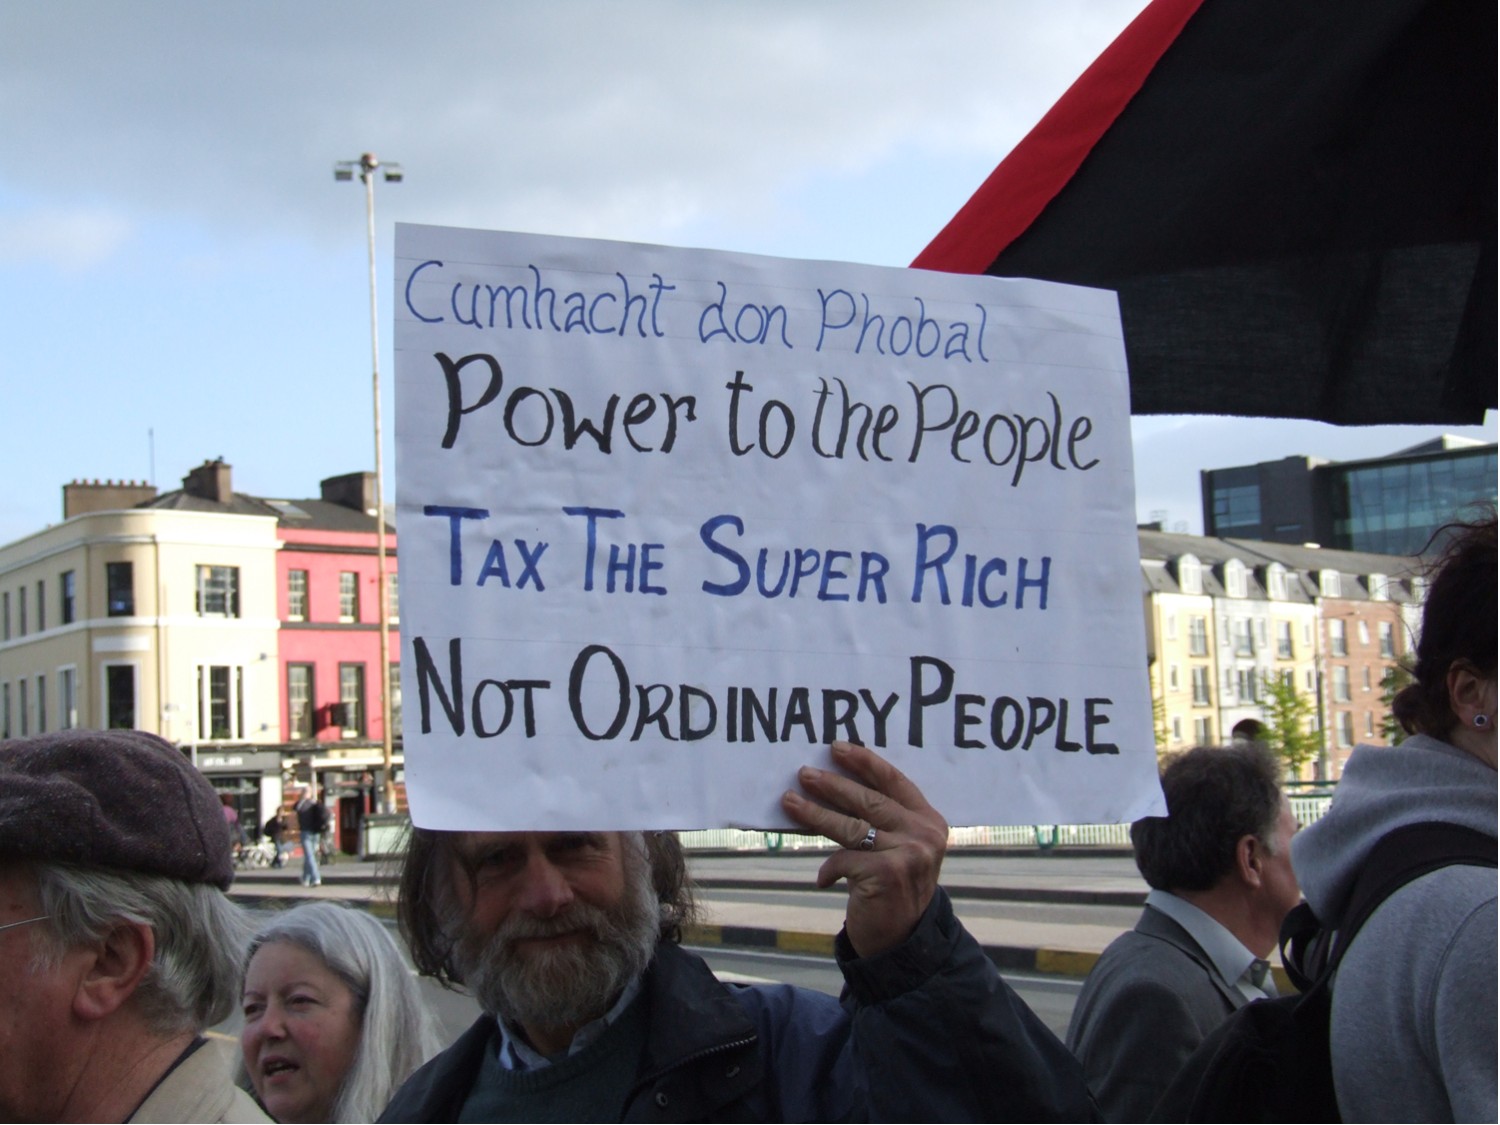 Cumhacht don Phobal
Power to the People
TAX THE SUPER RICH
NOT ORDINARY PEOPLE